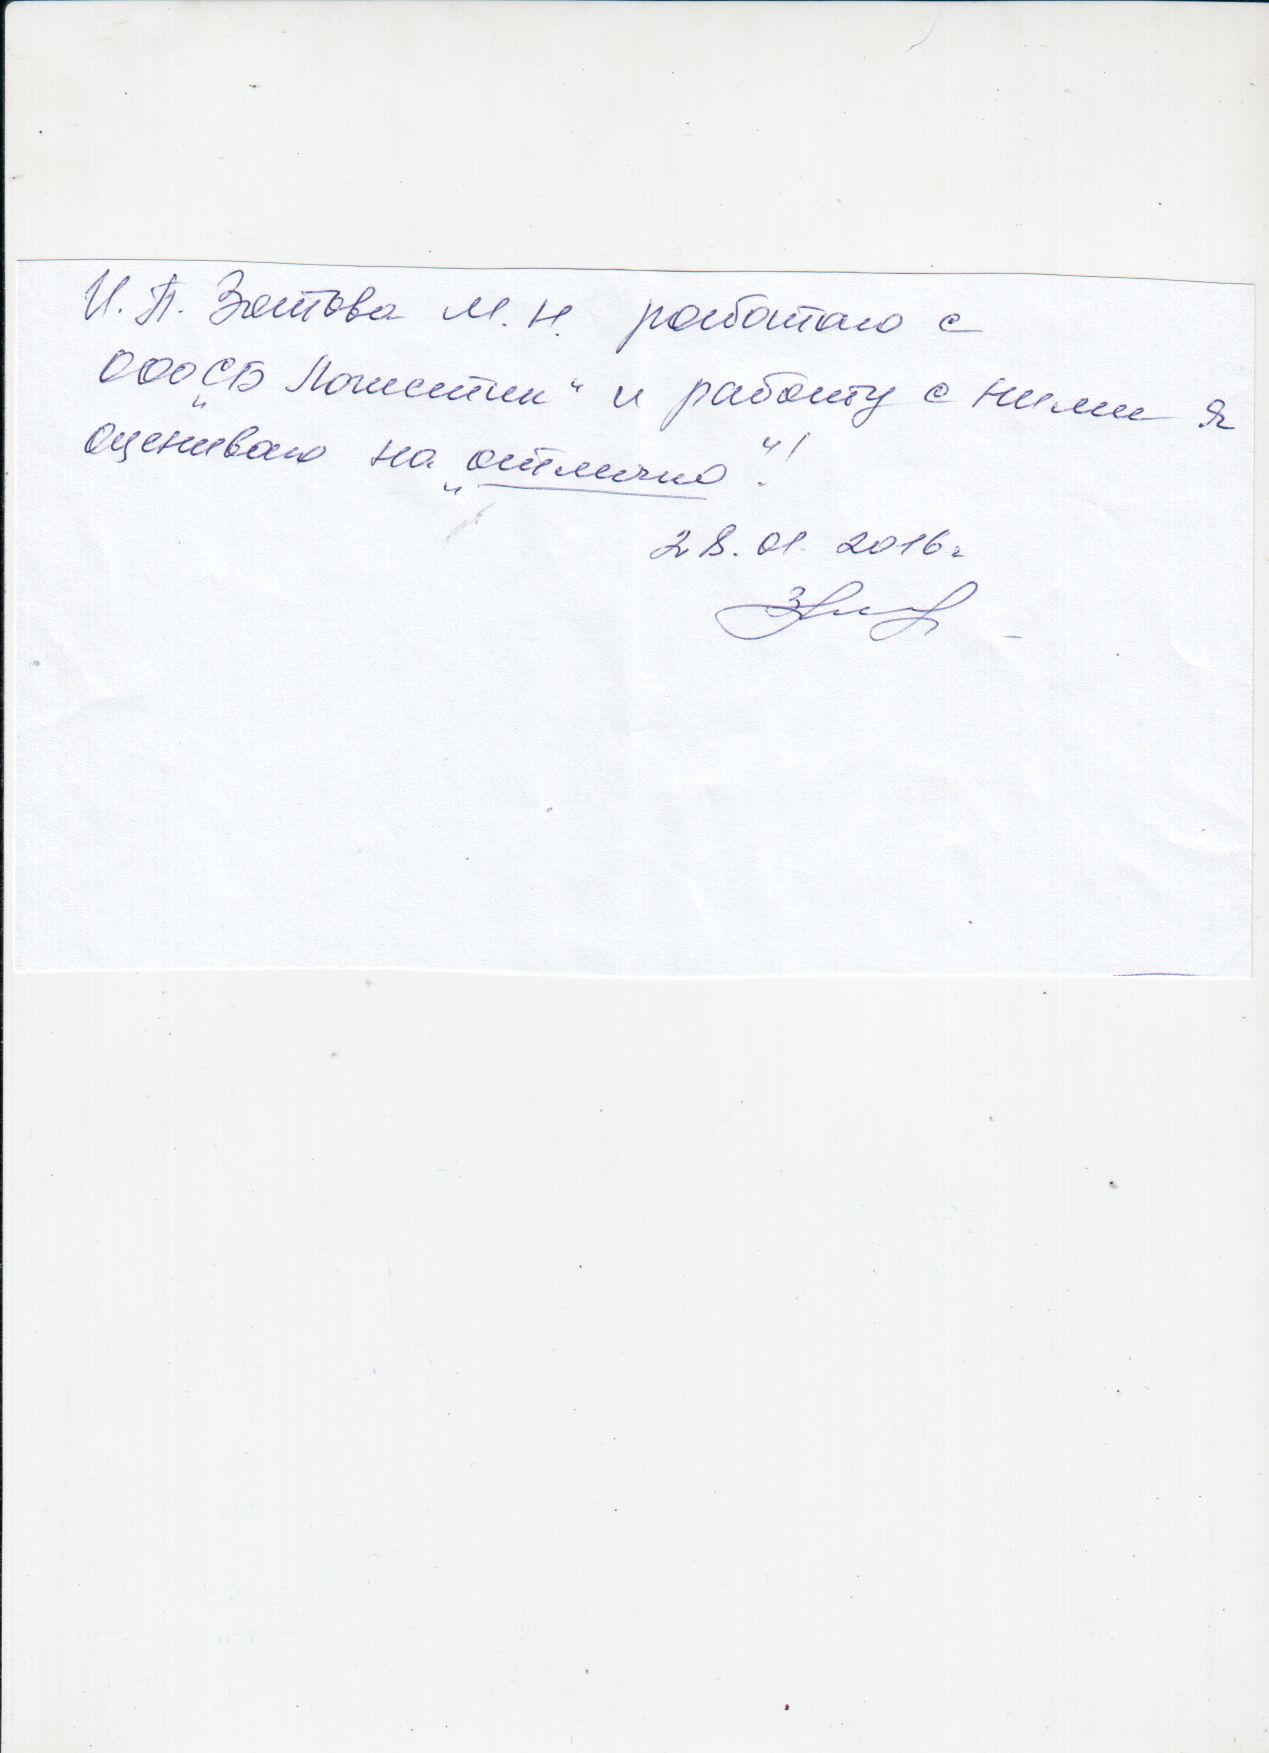 И.П. Зотова М.Н. работаю с
ООО „СБ Логистик“ и работу с ними я
оцениваю на „отлично“!
28.01.2016г